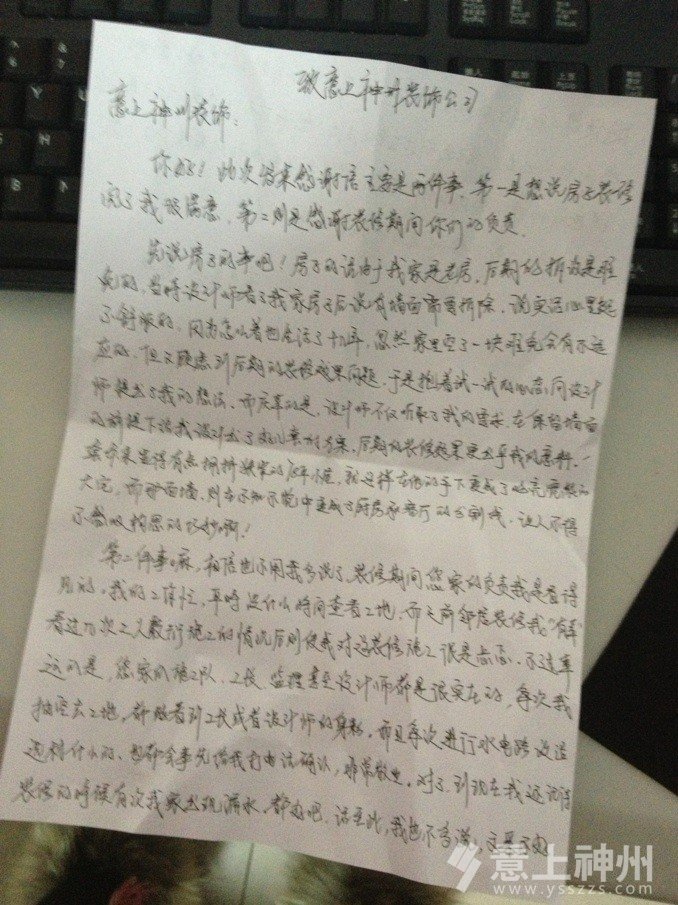 致意上神州装饰公司
意上神州装饰:
你好!此次写来感谢信主要是两件事,第一是想说房子装修
完了我很满意,第二则是感谢装修期间你们的负责。
先说房子的事吧!房子的话由于我家是老房,后期的拆改是难
免的,当时设计师看了我家房子后说有墙面需要拆除,说实话心里挺
不舒服的,因为怎么着也住了十几年,忽然家里空了一块难免会有不适
应的,但又顾虑到后期的装修效果问题,于是抱着试一试的心态同设计
师提出了我的想法,而庆幸的是,设计师不仅听取了我的要求,在保留墙面
的前提下给我设计出了文案方案,后期的装修效果更出乎我的意料,一
套本来显得有点拥挤的房子,就这样在他的手下变成了明亮宽敞的
大宅,而那面墙,则在不知不觉中变成了厨房和客厅的分割线,让人不得
不叹服构思的巧妙啊!
第二件事嘛,相信也不用我多说了,装修期间您家的负责我是看得
见的,我的工作忙,平时没什么时间查看工地,而之前邻居装修我"有幸"
看过几次工人敷衍施工的情况后则使我对这装修施工很是忐忑,不过幸
运的是,您家的施工队、工长、监理甚至设计师都是很实在的,每次我
抽空去工地,都能看到工长或者设计师的身影,而且每次进行水电路改造
进材料什么的,也都会事先给我打电话确认,非常敬业,对了,到现在我还记得
装修的时候有次我家出现漏水,都
话至此,我也不多说,
意上神州
www.ysszzs.com